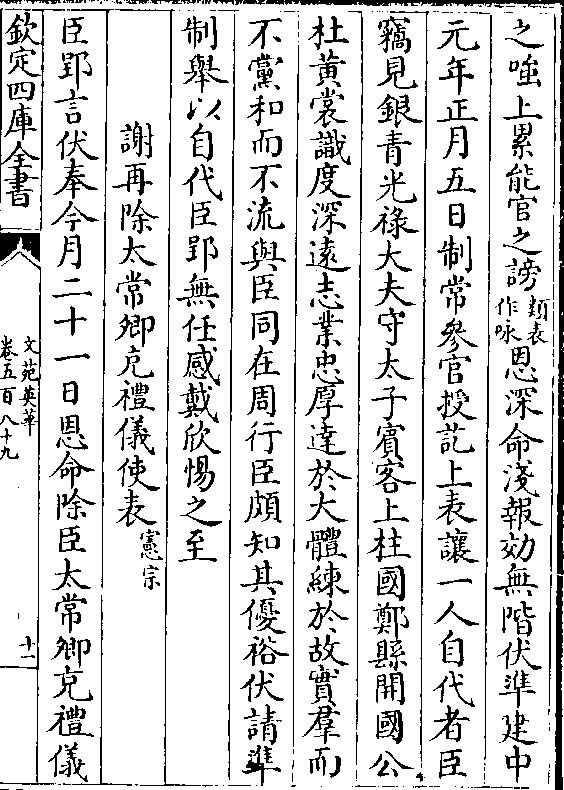 之嗤上累能官之謗類表作咏恩深命淺報效無階伏準建中
元年正月五日制常參官授訖上表讓一人自代者臣
竊見銀青光祿大夫守太子賓客上柱國鄭縣開國公
杜黃裳識度深遠志業忠厚達於大體練於故實羣而
不黨和而不流與臣同在周行臣頗知其優裕伏請準
制舉以自代臣郢無任感戴欣惕之至
謝再除太常卿充禮儀使表憲宗
臣郢言伏奉今月二十一日恩命除臣太常卿充禮儀
欽定四庫全書
文苑英華
卷五百八十九
十一